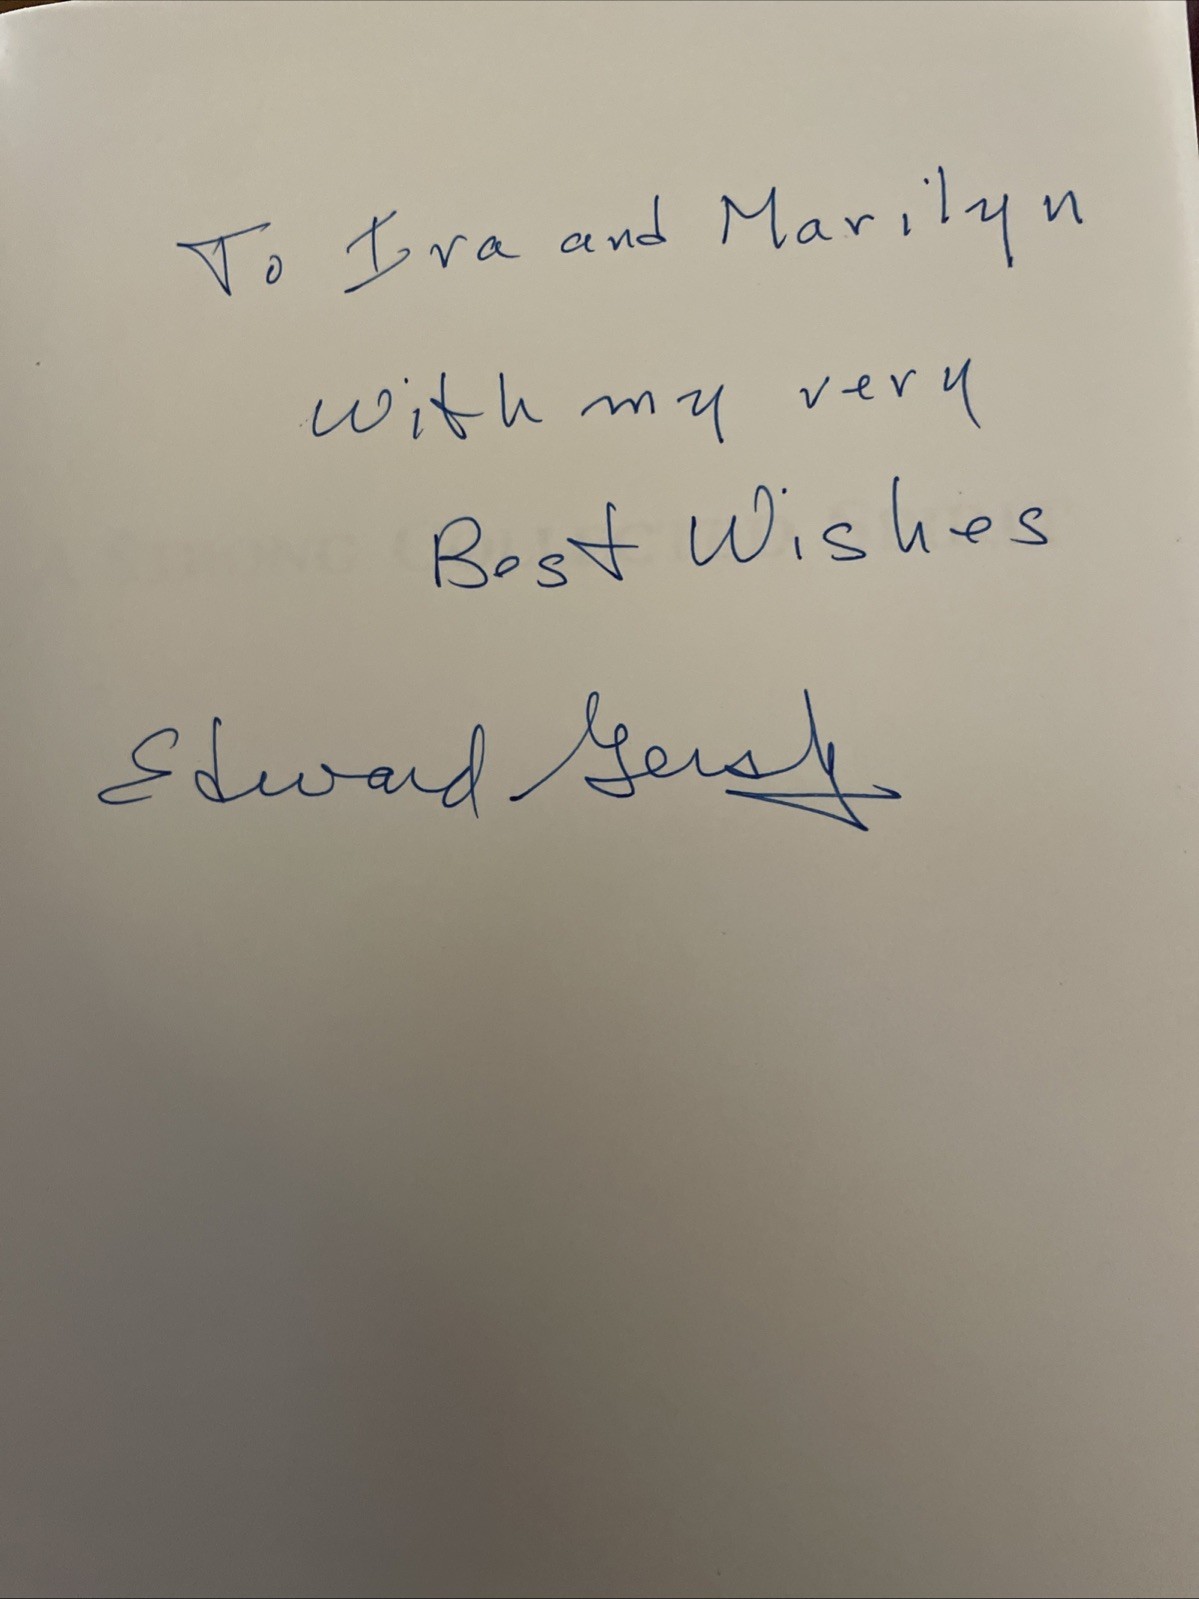 To Ira and Marilyn
with my very
Best Wishes
Edward